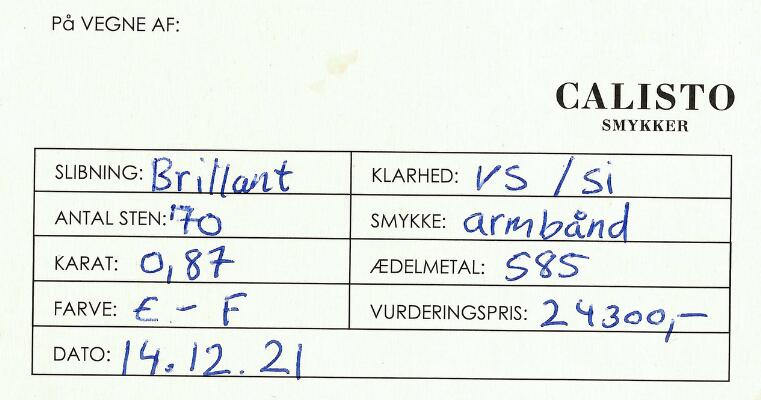 På VEGNE AF:
CALISTO
SMYKKER
SLIBNING: Brillant KLARHED: VS / Si
ANTAL STEN: 70 SMYKKE: armbånd
KARAT: 0,87 ÆDELMETAL: 585
FARVE: E - F VURDERINGSPRIS: 24300,-
DATO: 14.12.21